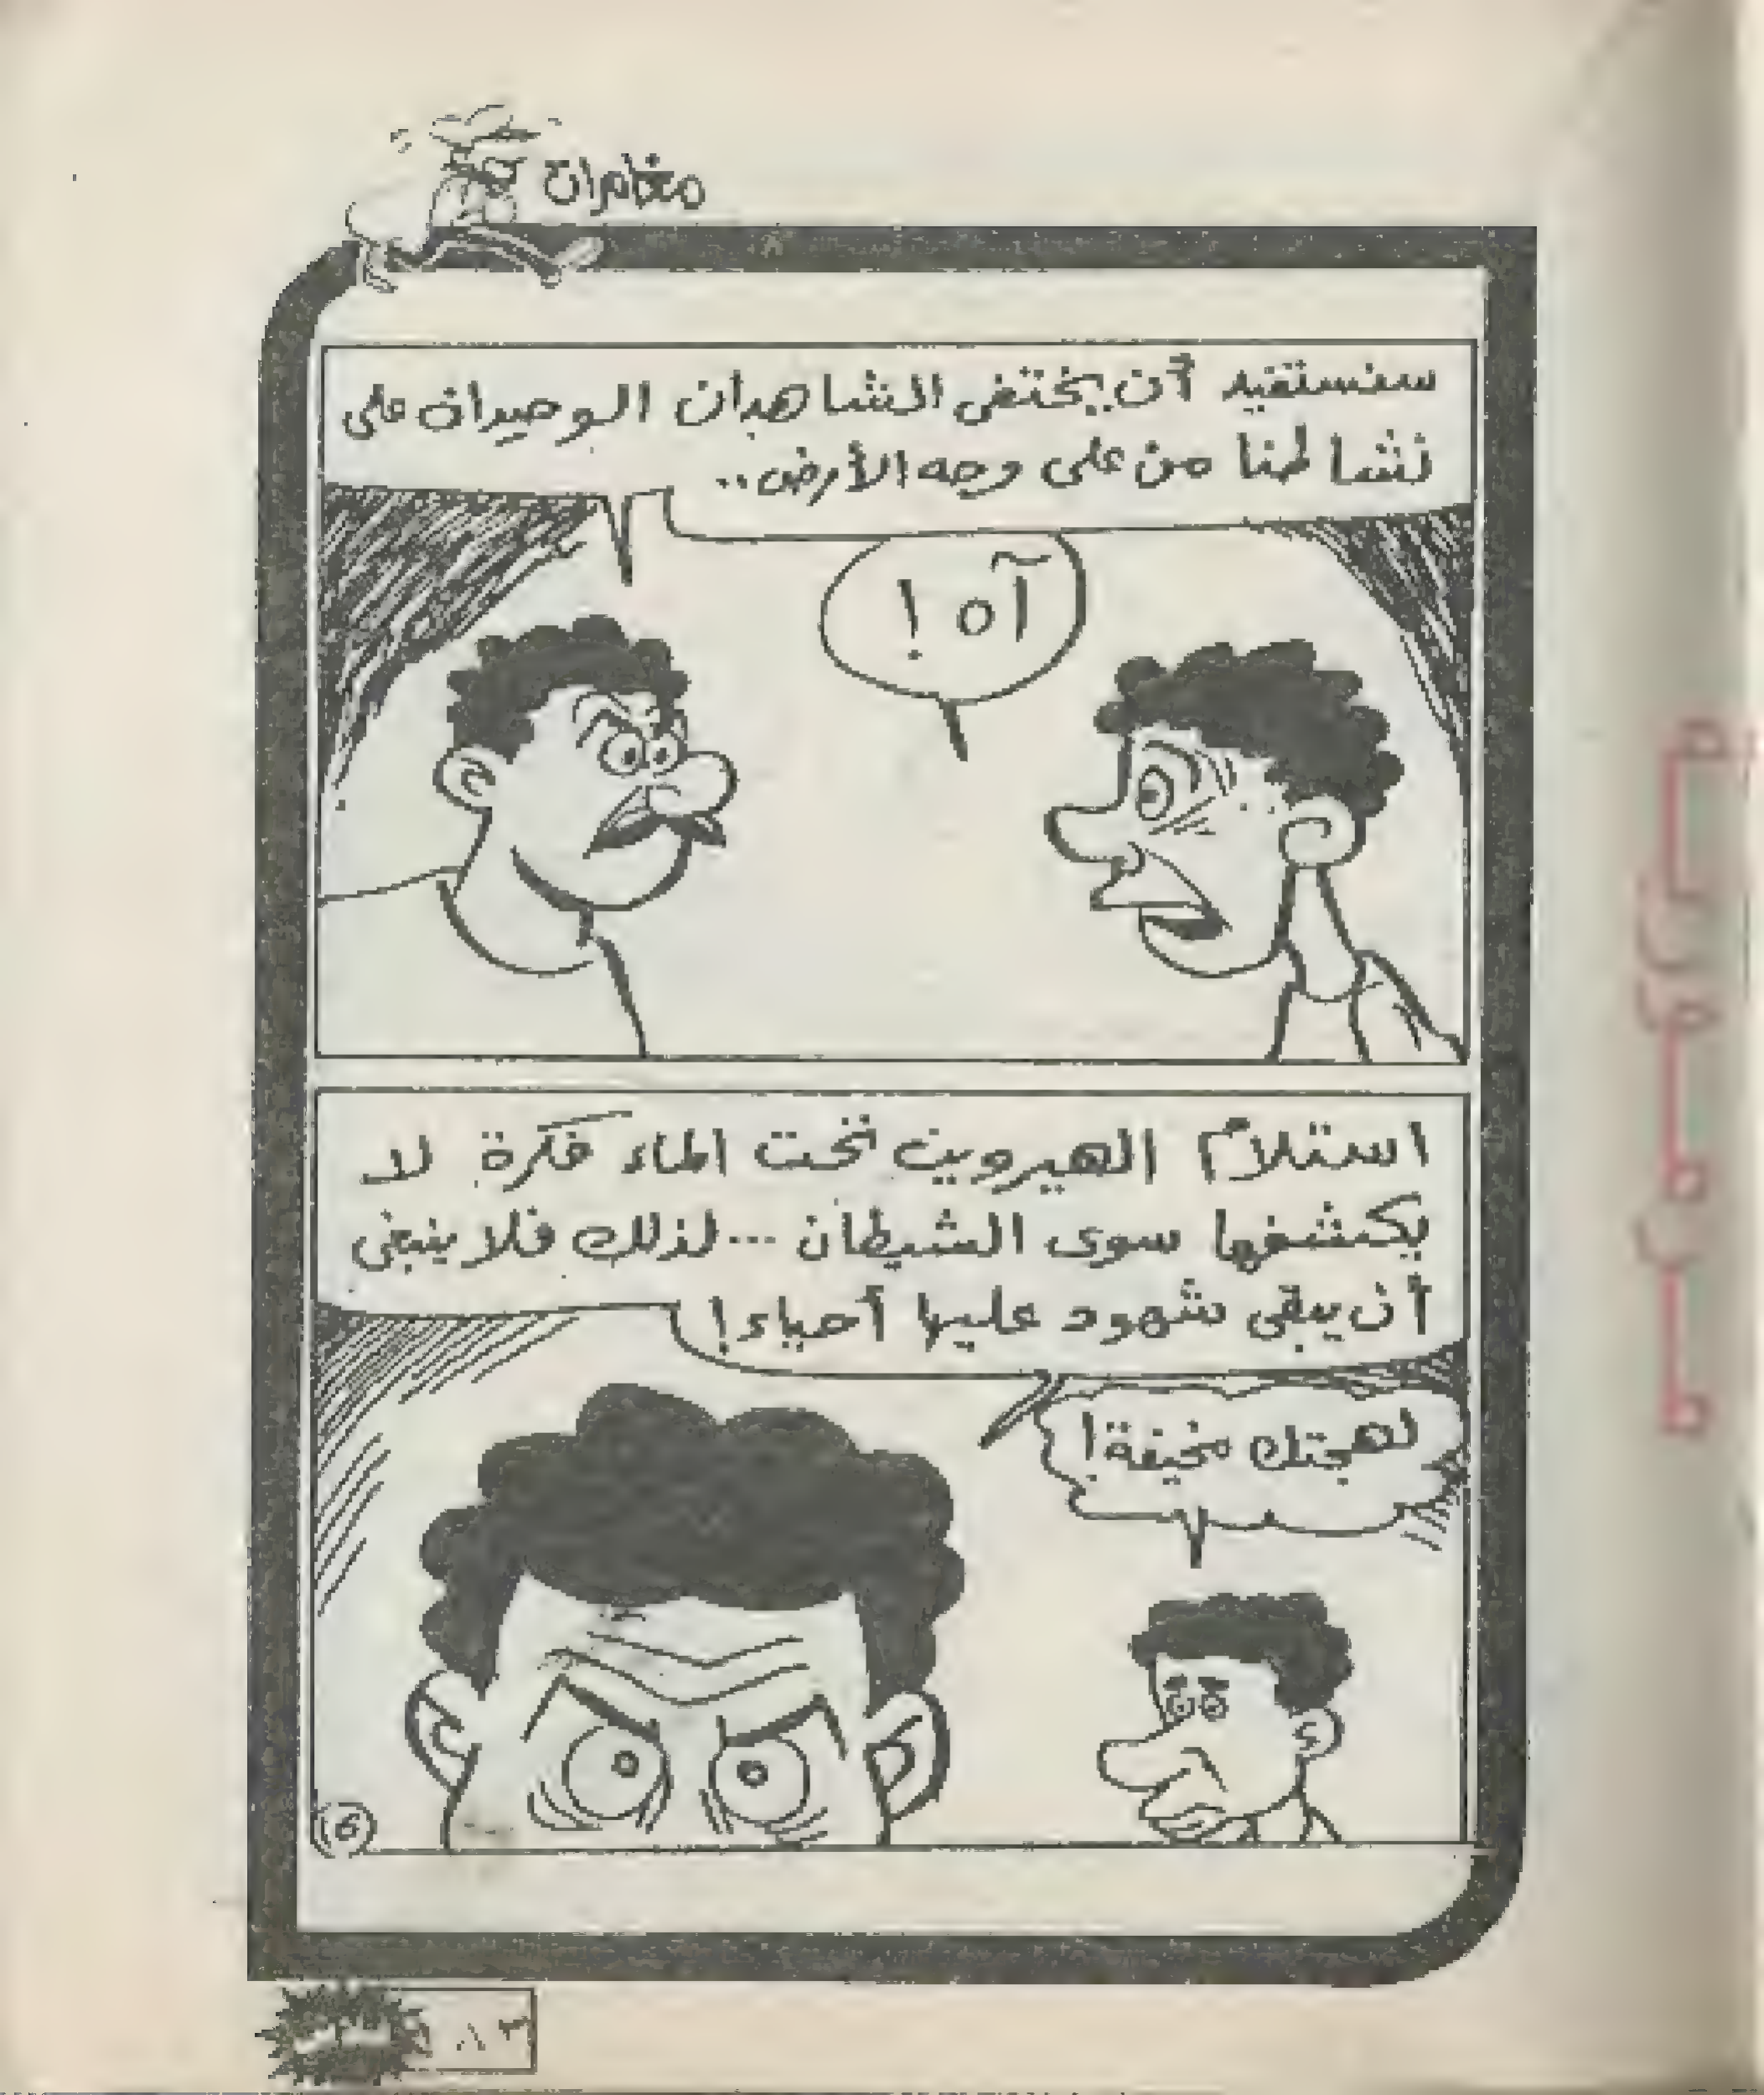 مغامرات
سنستفيد أن يختفى الشاهدان الوحيدان على
نشاطنا من على وجه الأرض..
آه !
استلام الهيروين تحت الماء فكرة لا
يكتشفها سوى الشيطان ... لذلك فلا ينبغى
أن يبقى شهود عليها أحياء !
لهجتك مخيفة !
6
٨٣